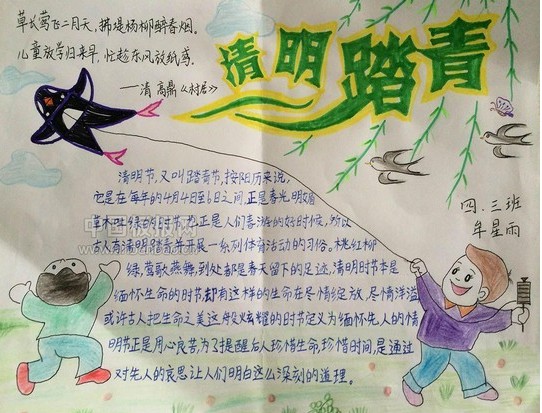 草长莺飞二月天，拂堤杨柳醉春烟。
儿童放学归来早，忙趁东风放纸鸢。
——清 高鼎《村居》
清明踏青
四.三班
牟星雨
清明节，又叫踏青节，按阳历来说，
它是在每年的4月4日至6日之间，正是春光明媚
草木吐绿的时节，也正是人们春游的好时候，所以
古人有清明踏青并开展一系列体育活动的习俗。桃红柳
绿，莺歌燕舞，到处都是春天留下的足迹，清明时节本是
缅怀生命的时节，却有这样的生命在尽情绽放，尽情洋溢
或许古人把生命之美这般炫耀的时节定义为缅怀先人的清
明节正是用心良苦，为了提醒后人珍惜生命，珍惜时间，是通过
对先人的哀思让人们明白这么深刻的道理。